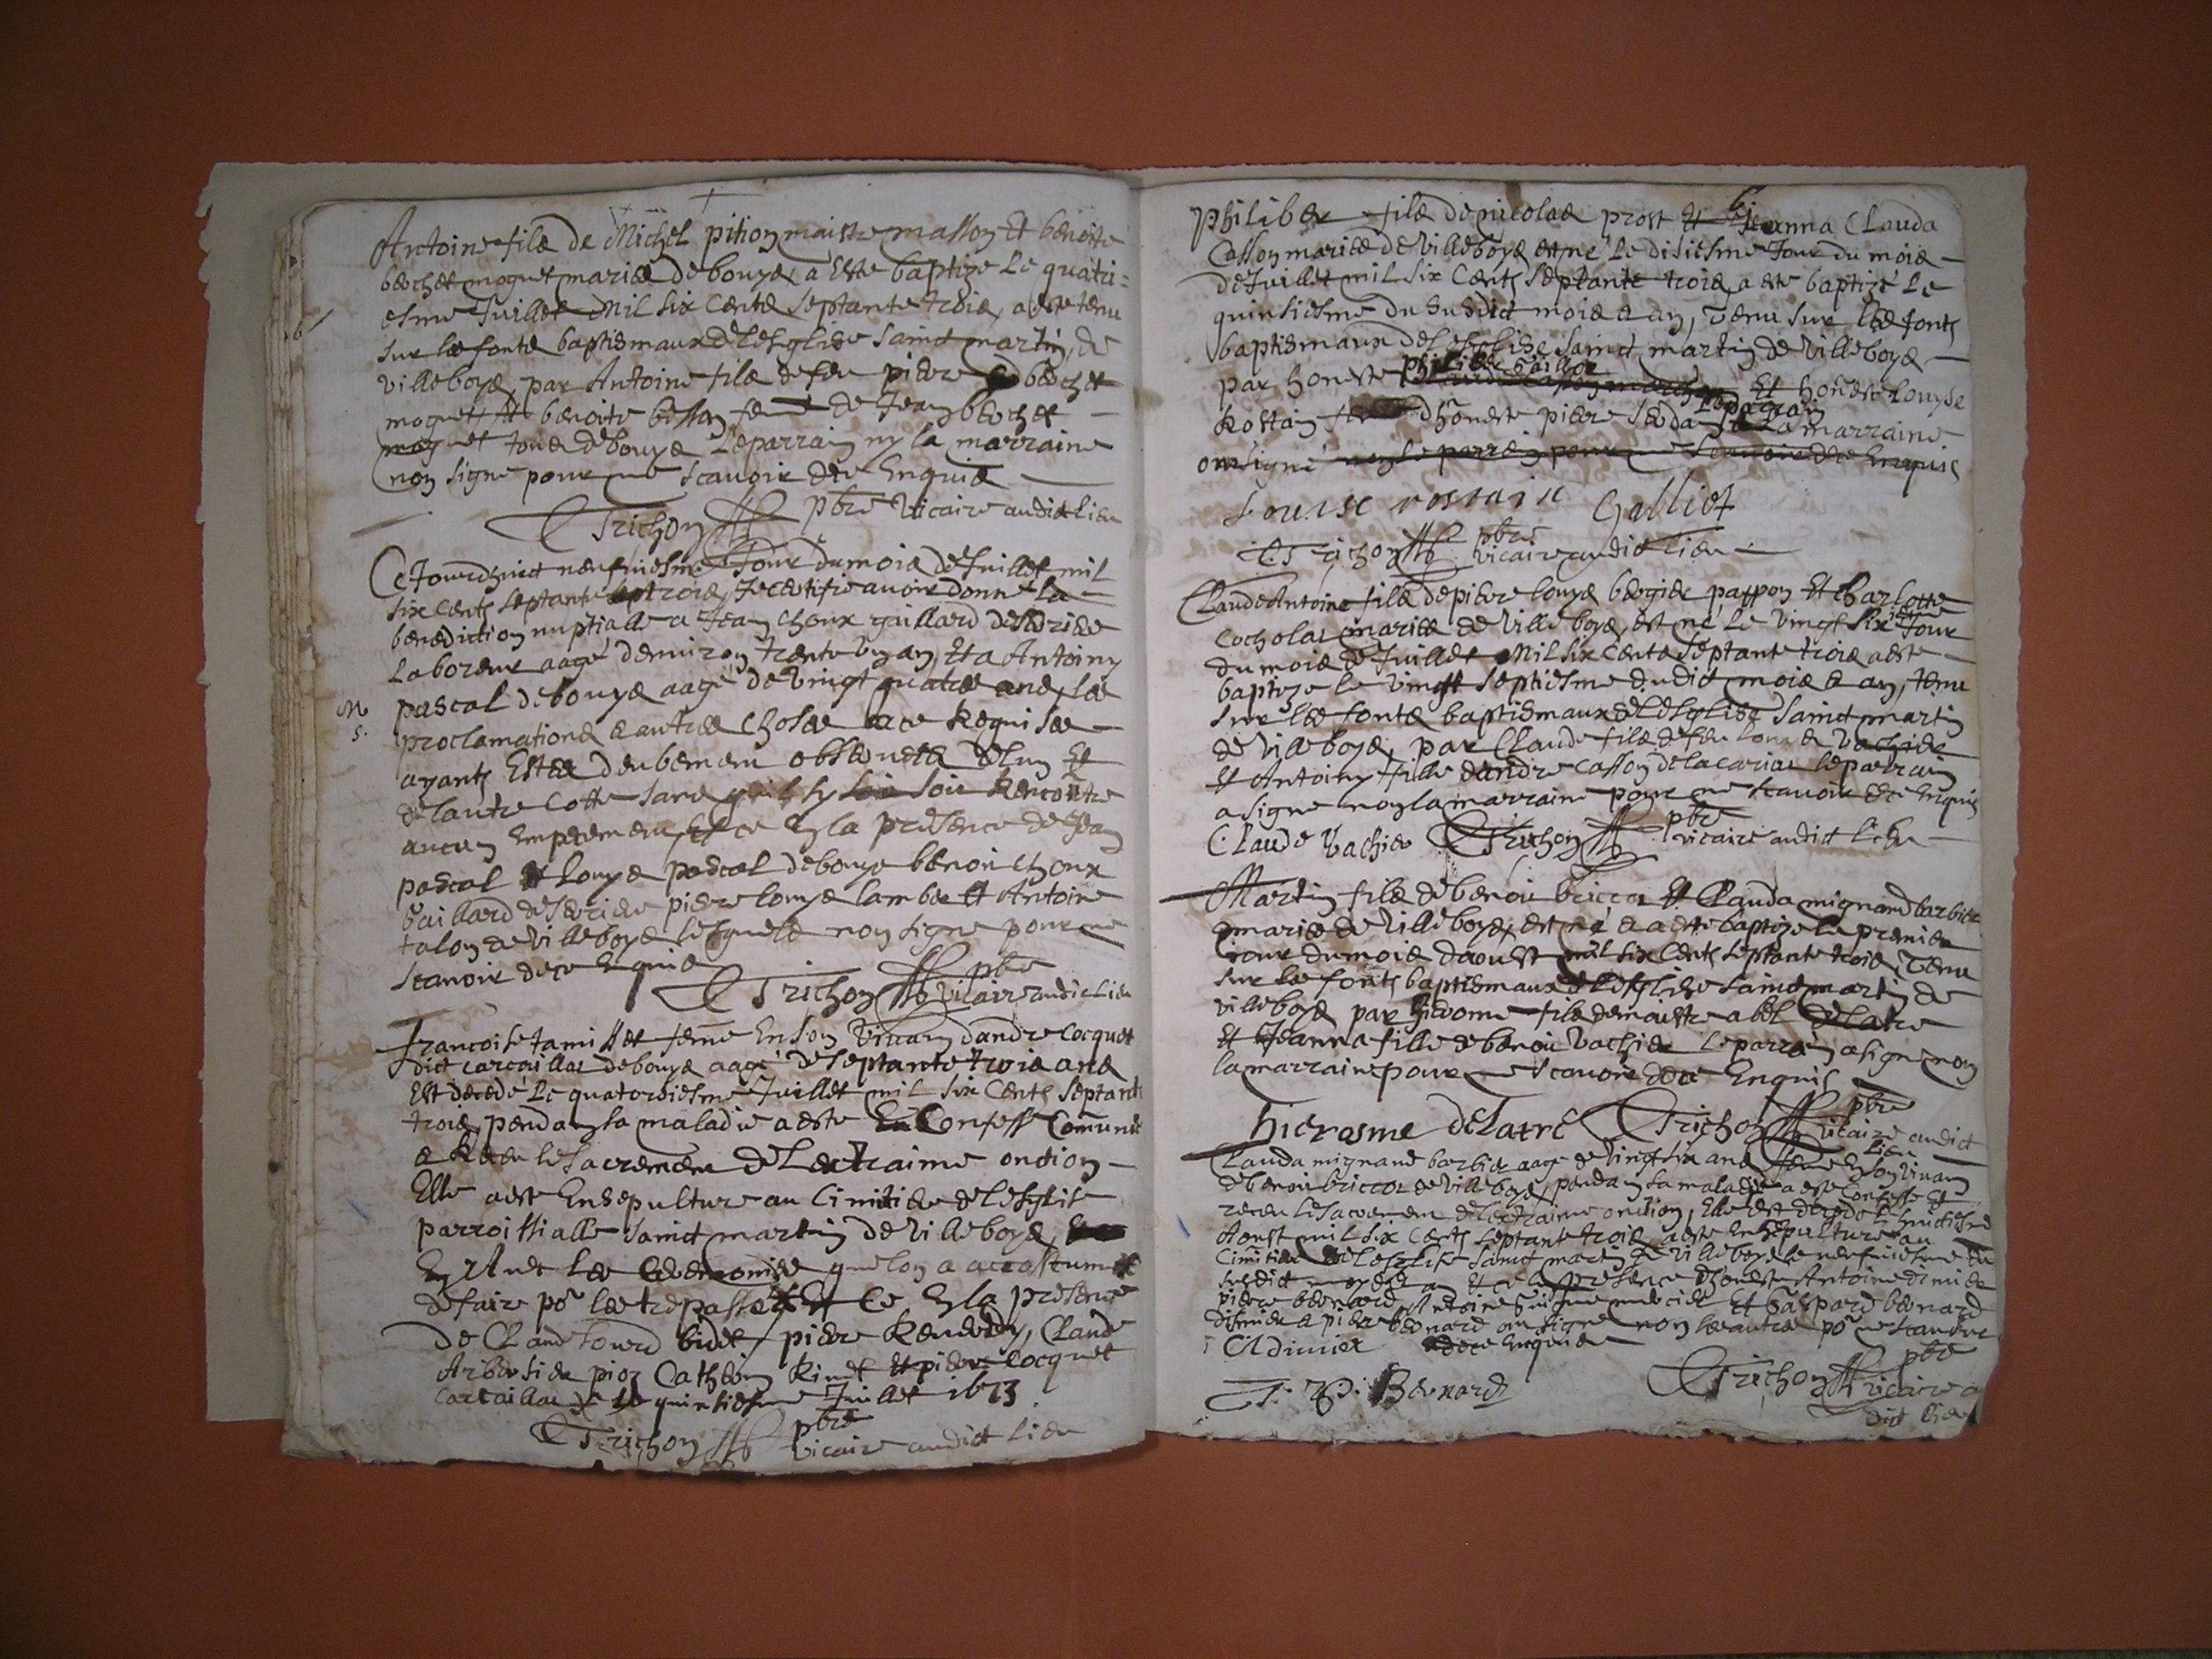 Antoine fils de Michel pition maistre masson et benoite
berchet moguet mariés de bouys, a este baptize le quatri=
esme Juillet Mil six Cents septante trois, a este tenu
sur les fonts baptismaux de lesglise sainct martin, de
villeboys, par Antoine fils de feu piere berchet
moguet et benoite besson feme de Jean berchet
moguet tous de bouys Le parrain ny la marraine
non signe pour ne scavoir de ce Enquis
Trichon pbre vicaire audict lieu
Ce Jourdhuict neufviesme Jour du mois de Juillet mil
six Cents septante trois, Je certifie avoir donne la
benediction nuptialle a Jean Choux gaillard de serrieres
laboreur aagé denviron trente ans, et a Antoiny
M pascal de bouys aagé de vingt quatre ans, les
s. proclamations et autres choses a ce requises
ayants Estes deubement observees de lun et
de lautre Cotte sans quil sy soit rencontre
aucun Empechement, Et ce En la presence de Jean
pascal Louys pascal de bouys benoit Choux
gaillard de serrieres piere louys lambert et Antoine
talon de villeboys lesquels non signe pour ne
scavoir de ce Enquis
Trichon pbre vicaire audict lieu
Francoise tamisset feme En son vivant dandre Cocquet
dict carcaillat de bouys aagé de septante trois ans
Est decedé le quatorsiesme Juillet mil six Cents septante
trois, pendant sa maladie a este Confesse Comunie
et Receu le sacrement de Lextraime onction
Elle a este Ensepulture au Cimitiere de lesglise
parroissialle sainct martin de villeboys,
En avec les Ceremonies que lon a accoustumés
de faire por les trépassés Et Ce En la presence
de Claude tourd bidet, piere Reverdy, Claude
Cathein Rinet et piere Cocquet
carcaillat le quinsiesme Juillet 1673
Trichon pbre vicaire audict lieu
philiber fils de nicolas prost et Clauda
Casson mariés de Villeboys est né le disiesme Jour du mois
de Juillet mil six Cents septante trois, a este baptizé le
quinsiesme du susdict mois et an, Tenu sur les fonts
baptismaux de lesglise sainct martin de villeboys
par honeste philiber gailliot et honeste Louyse
Rostain feme dhoneste piere le parrain la marraine
ont signé
Louise rostain Galliot
Trichon pbre vicaire audict lieu
Claude Antoine fils de piere louys bergier pappon et Charlotte
Cocholat mariés de villeboys, est né le vingt sixiesme Jour
du mois de Juillet Mil six Cents septante trois a este
baptize le vingt septiesme dudict mois et an, tenu
sur les fonts baptismaux de lesglise sainct martin
de villeboys, par Claude fils de feu vachier
et Antoiny fille dandre Casson le parrain
a signe non la marraine pour ne scavoir de ce Enquis
Claude Vachier Trichon pbre vicaire audict lieu
Martin fils de benoit briccot et Clauda mignand barbier
mariés de villeboys, est né et a este baptize le premier
jour du mois daoust mil six Cents septante trois, Tenu
sur les fonts baptismaux de lesglise sainct martin de
villeboys par hierome fils de maistre abel delatre
et Jeanna fille de benoit vachier le parrain a signe non
la marraine pour ne scavoir de ce Enquis
hierosme delatre Trichon pbre vicaire audict
lieu
Clauda mignand barbier aage de vingt six ans feme En son vivant
de benoit briccot de villeboys, pendant sa maladie a este Confesse et
receu le sacrement de lextraime onction, Elle est decede le huictiesme
Aoust mil six Cents septante trois, a este Ensepulture au
Cimitiere de lesglise sainct martin de villeboys le neufviesme du
susdict moys et an et ce En presence dhoneste Antoine dimier
piere bernard, Antoine et Gaspard bernard
dimier et piere bernard ont signe non les autres por ne scavoir
de ce Enquis
A dimier
Bernard
Trichon pbre
vicaire au
dict lieu